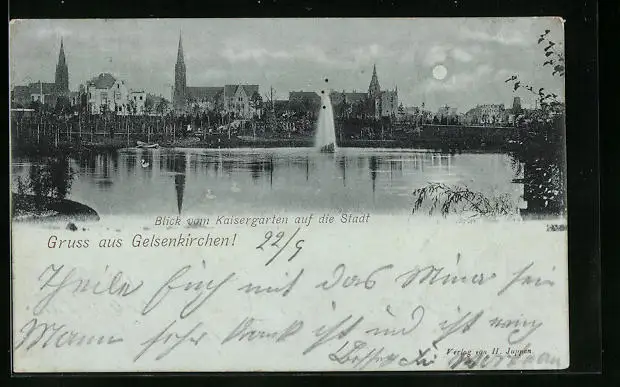 Blick vom Kaisergarten auf die Stadt
Gruss aus Gelsenkirchen!
22/9
Theile Euch mit das Mina sein
Mann sehr krank ist und ist wenig
Verlag von H. Juppen